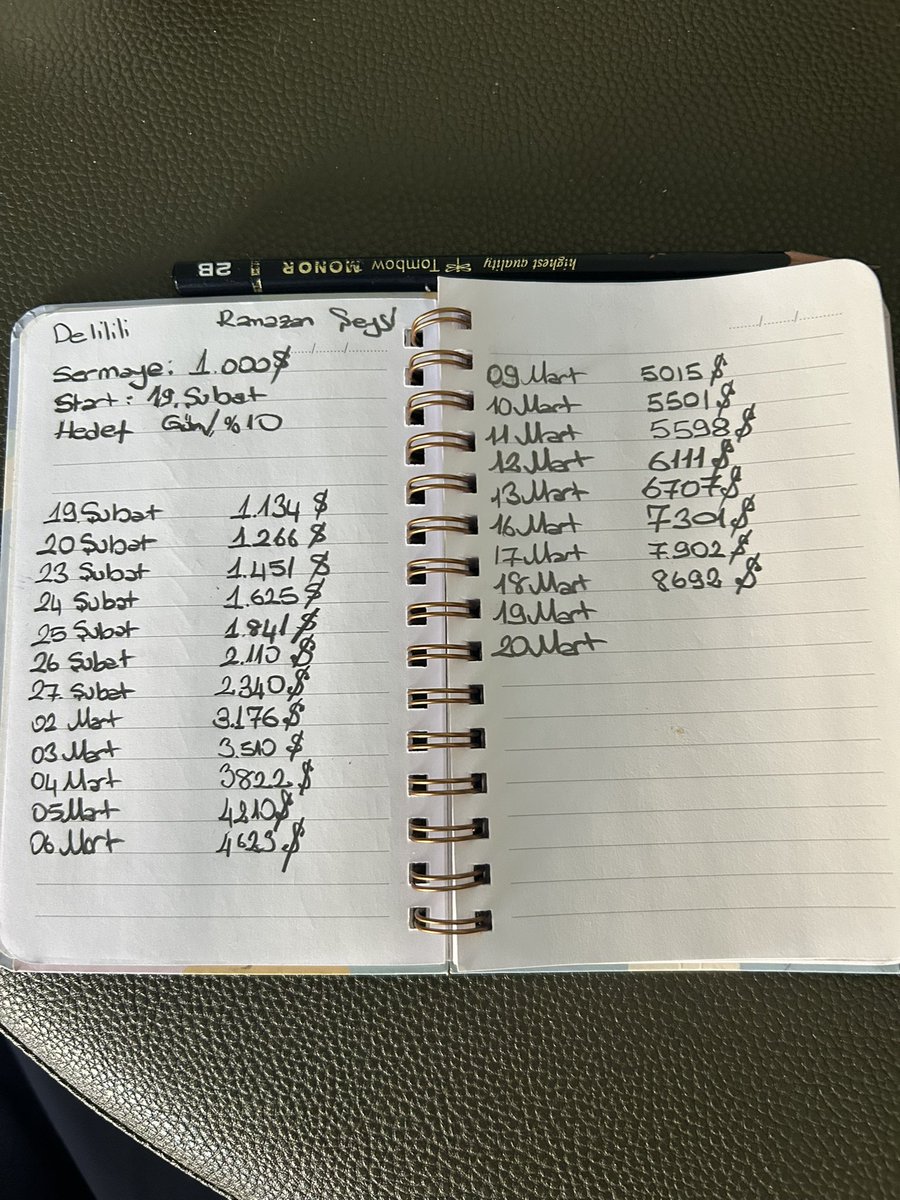 2B Tombow MONOR highest quality
Delilili Ramazan Şeysi
Sermaye: 1.000$
Start: 19.Şubat
Hedef Gün/%10
19.Şubat 1.134 $
20 Şubat 1.266 $
23 Şubat 1.451 $
24 Şubat 1.625 $
25 Şubat 1.841 $
26 Şubat 2.110 $
27 Şubat 2.340 $
02 Mart 3.176 $
03 Mart 3.510 $
04 Mart 3822 $
05 Mart 4210 $
06 Mart 4623 $
09 Mart 5015 $
10 Mart 5501 $
11 Mart 5598 $
12 Mart 6111 $
13 Mart 6707 $
16 Mart 7301 $
17 Mart 7.902 $
18 Mart 8692 $
19 Mart
20 Mart